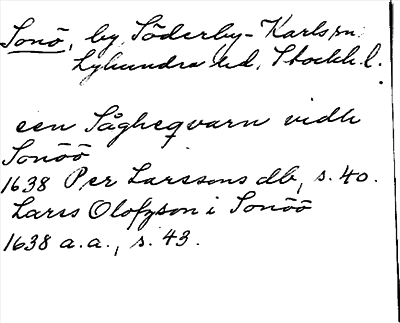 Sonö, by, Söderby-Karls sn,
Lyhundra hd, Stockh. l.
een Sågheqvarn vidh
Sonöö
1638 Per Larssons db, s. 40.
Lars Olofzson i Sonöö
1638 a.a., s. 43.